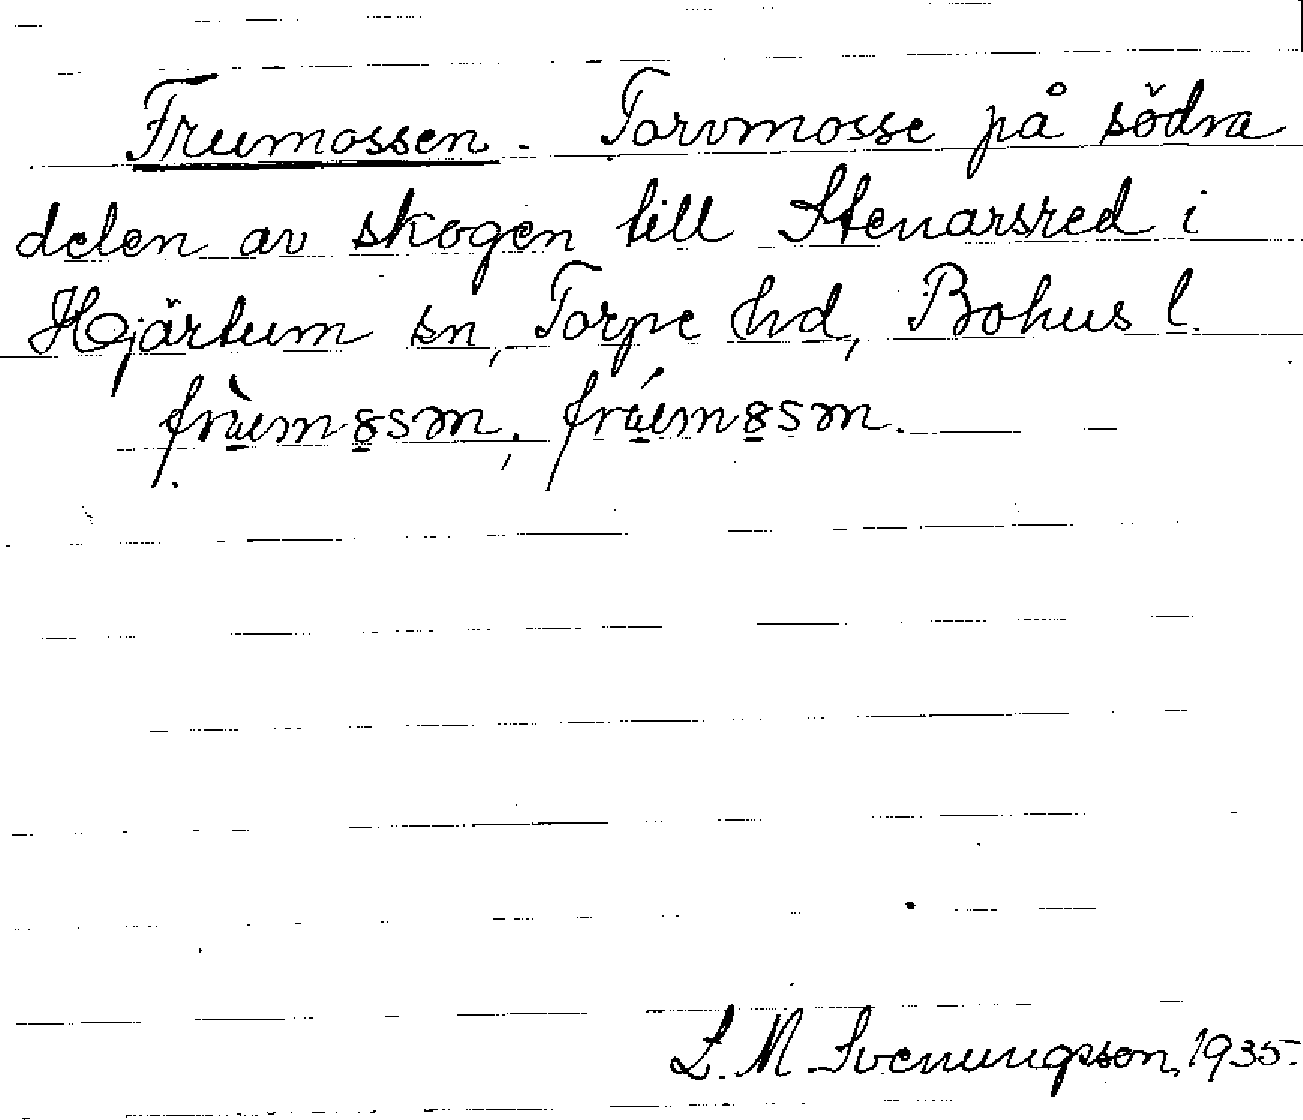 Frumossen. Torvmosse på södra
delen av skogen till Stenarsred i
Hjärtum sn, Torpe hd, Bohus l.
L. M. Svenungsson, 1935.